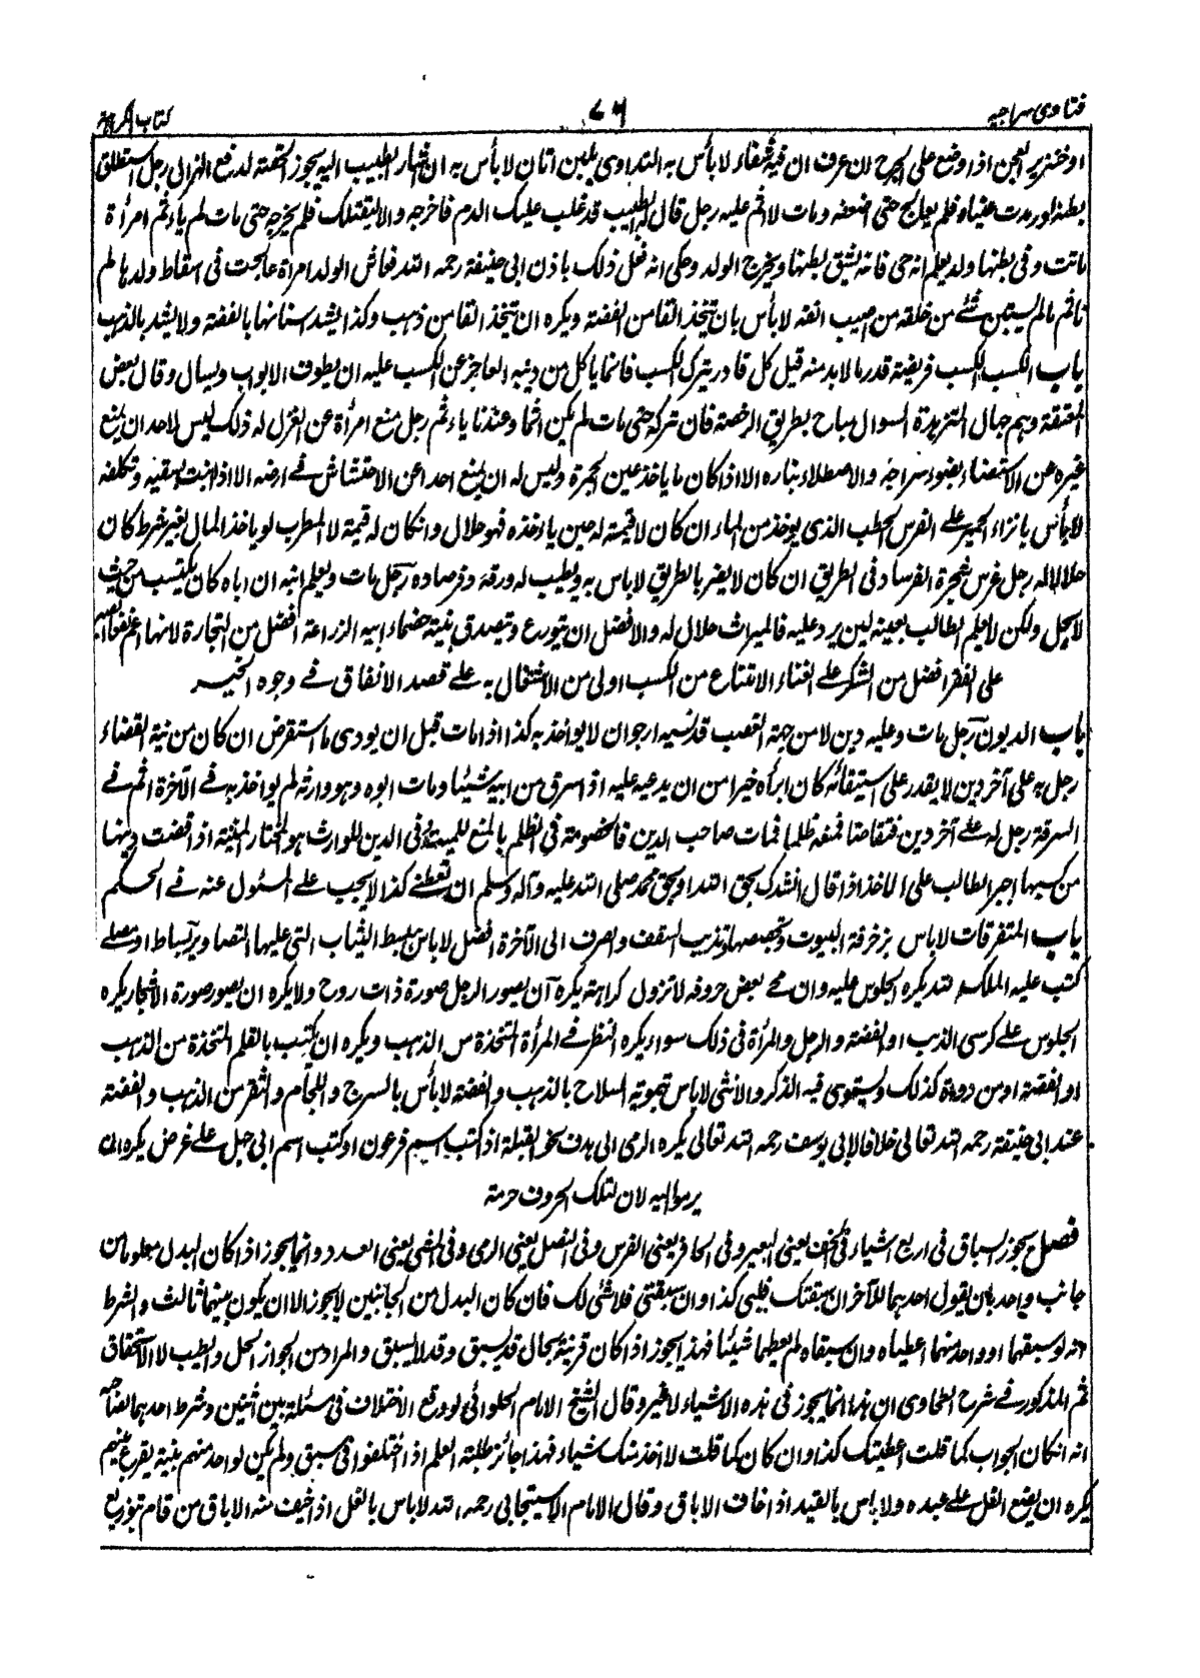 فتاوی سراجیہ
۷۶
او خنزیر یعجن اذا وضع علی الجرح ان عرف ان فیه شفاء لا بأس به التداوی بلبن اتان لا بأس به ان اشار الطبیب الیه یجوز الحقنة لدفع الهزال رجل استطلق
بطنه او رمدت عیناه فلم یعالج حتی اضعفه ومات لا اثم علیه رجل قال له الطبیب قد غلب علیک الدم فاخرجه والا لیقتلک فلم یخرجه حتی مات لم یأثم امرأة
ماتت وفی بطنها ولد یعلم انه حی فانه یشق بطنها ویخرج الولد وحکی انه فعل ذلک باذن ابی حنیفة رحمه الله فعاش الولد امرأة عالجت فی اسقاط ولدها لم
تأثم ما لم یستبن شئ من خلقه من اصیب انفه لا بأس بان یتخذ انفا من الفضة ویکره ان یتخذ انفا من ذهب وکذا یشد اسنانها بالفضة ولا یشد بالذهب
باب الکسب الکسب فریضة قدر ما لا بد منه قیل کل قادر یترک الکسب فانما یأکل من دینه العاجز عن الکسب علیه ان یطوف الابواب ویسأل وقال بعض
المتقشفة وهم جهال المتزهدة السوال مباح بطریق الرخصة فان ترکه حتی مات لم یکن آثما وعندنا یأثم رجل منع امرأة عن الغزل له ذلک لیس لاحد ان یمنع
غیره عن الاستضاءة بضوء سراجه والاصطلاء بناره الا اذا کان ما یاخذ عین الجمرة ولیس له ان یمنع احدا عن الاحتشاش فی ارضه الا اذا انبت بسقیه وتکلفه
لا بأس بانزاء الحمیر علی الفرس الحطب الذی یوخذ من الماء ان کان لا قیمة له حین یاخذه فهو حلال وان کان له قیمة لا المطرب لو یاخذ المال بغیر شرط کان
حلالا له رجل غرس شجرة الفرصاد فی الطریق ان کان لا یضر بالطریق لا باس به ویطیب له ورقه وفرصاده رجل مات ویعلم ابنه ان اباه کان یکتسب من حیث
لا یحل ولکن لا یعلم الطالب بعینه لیرد علیه فالمیراث حلال له والافضل ان یتورع ویتصدق بنیة خصماء ابیه الزراعة افضل من التجارة لانها اعم نفعا الصبر
علی الفقر افضل من الشکر علی الغناء الامتناع من الکسب اولی من الاشتغال به علی قصد الانفاق فی وجوه الخیر
باب الدیون رجل مات وعلیه دین لا من جهة الغصب قد نسیه ارجو ان لا یواخذ به کذا اذا مات قبل ان یودی ما استقرض ان کان من نیة القضاء
رجل له علی آخر دین لا یقدر علی استیفائه کان ابرأه خیرا من ان یدعیه علیه اذا سرق من ابیه شیئا ومات ابوه وهو وارثه لم یواخذ به فی الآخرة اثم فی
السرقة رجل له علی آخر دین فتقاضا فمنعه ظلما فمات صاحب الدین فالخصومة فی الظلم بالمنع للمیت وفی الدین للوارث هو المختار المغنیة اذا قضت دینها
من کسبها اجبر الطالب علی الاخذ اذا قال انشدک بحق الله او بحق محمد صلی الله علیه وآله وسلم ان تعطینی کذا لا یجب علی المسئول عنه فی الحکم
باب المتفرقات لا باس بزخرفة البیوت وتجصیصها وتذهیب السقف والصرف الی الآخرة افضل لا باس ببسط الثیاب التی علیها التصاویر بساط او مصلی
کتب علیه الملک لله یکره الجلوس علیه وان محی بعض حروفه لا تزول کراهته یکره ان یصور الرجل صورة ذات روح ولا یکره ان یصور صورة الاشجار یکره
الجلوس علی کرسی الذهب او الفضة والرجل والمرأة فی ذلک سواء یکره النظر فی المرأة المتخذة من الذهب ویکره ان یکتب بالقلم المتخذة من الذهب
او الفضة او من دواة کذلک ویستوی فیه الذکر والانثی لا باس بتمویه السلاح بالذهب والفضة لا بأس بالسرج واللجام والثفر من الذهب والفضة
عند ابی حنیفة رحمه الله تعالی خلافا لابی یوسف رحمه الله تعالی یکره الرمی الی هدف نحو القبلة اذا کتب اسم فرعون او کتب اسم ابی جهل علی غرض یکره ان
یرموا الیه لان لتلک الحروف حرمة
فصل یجوز السباق فی اربع اشیاء فی الخف یعنی البعیر وفی الحافر یعنی الفرس وفی النصل یعنی الرمی وفی المشی یعنی العدد وانما یجوز اذا کان البدل معلوما من
جانب واحد بان یقول احدهما للآخر ان سبقتک فلی کذا وان سبقتنی فلا شئ لک فان کان البدل من الجانبین لا یجوز الا ان یکون بینهما ثالث والشرط
انه لو سبقهما او واحد منهما اعطیاه وان سبقاه لم یعطهما شیئا فهذا یجوز اذا کان فرسه بحال قد یسبق وقد لا یسبق والمراد من الجواز الحل والطیب لا الاستحقاق
ثم المذکور فی شرح الطحاوی ان هذا انما یجوز فی هذه الاشیاء لا غیر وقال الشیخ الامام الحلوائی لو وقع الاختلاف فی مسئلة بین اثنین وشرط احدهما لصاحبه
انه ان کان الجواب کما قلت اعطیتک کذا وان کان کما قلت لا اخذ منک شیئا فهذا جائز طلبة العلم اذا اختلفوا فی سبق ولم یکن لواحد منهم بینة یقرع بینهم
یکره ان یضع الغل علی عبده ولا باس بالقید اذا خاف الاباق وقال الامام الاسبیجابی رحمه الله لا باس بالغل اذا خیف منه الاباق من قام بتوزیع